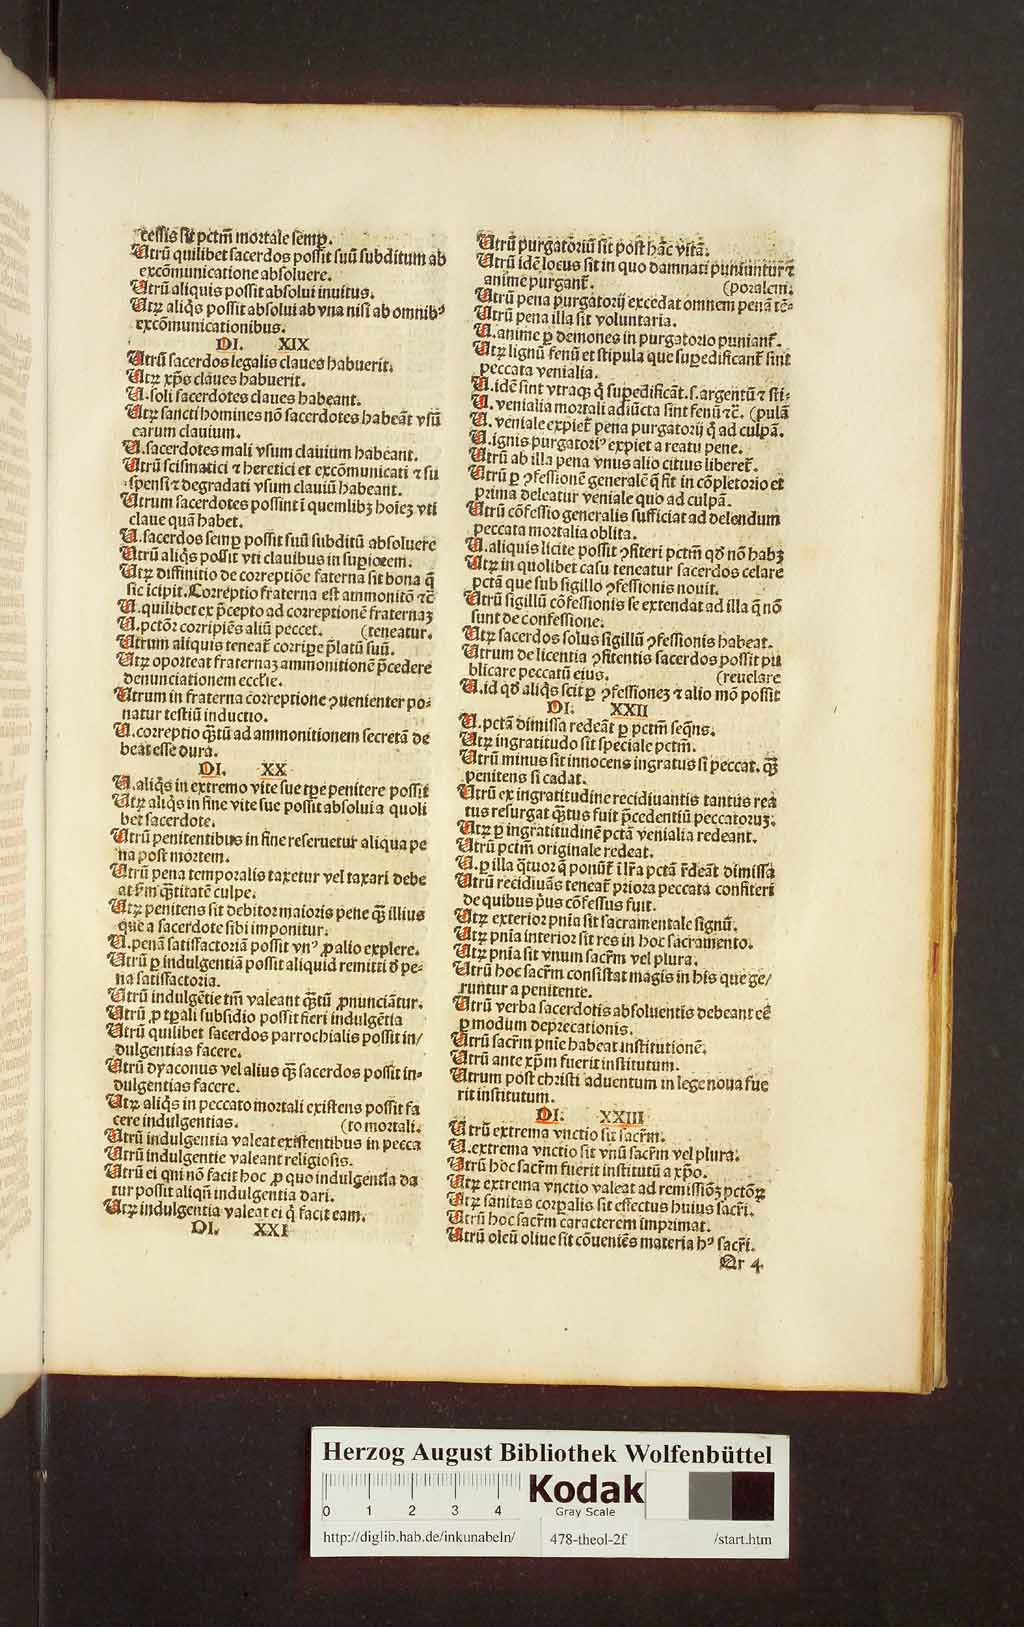 cessis sit pctm̄ mortale semꝑ.
Utrū quilibet sacerdos possit suū subditum ab
excōmunicatione absoluere.
Utrū aliquis possit absolui inuitus.
Utꝝ aliq̇s possit absolui ab vna nisi ab omnibꝰ
excōmunicationibus.
DI. XIX
Utrū sacerdos legalis claues habuerit.
Utꝝ xp̄s claues habuerit.
U. soli sacerdotes claues habeant.
Utꝝ sancti homines nō sacerdotes habeāt vsū
earum clauium.
U. sacerdotes mali vsum clauium habeant.
Utrū scismatici ⁊ heretici et excōmunicati ⁊ su
spensi ⁊ degradati vsum clauiū habeant.
Utrum sacerdotes possint ī quemlibꝫ hoīeꝫ vti
claue quā habet.
U. sacerdos semꝑ possit suū subditū absoluere
Utrū aliq̇s possit vti clauibus in suꝑiorem.
Utꝝ diffinitio de correptiōe faterna sit bona q̄
sic īcipit. Correptio fraterna est ammonitō ⁊c̄
U. quilibet ex p̄cepto ad correptionē fraternaꝫ
U. pctōr corripiēs aliū peccet. (teneatur.
Utrum aliquis teneat᷑ corriꝑe p̄latū suū.
Utꝝ oporteat fraternaꝫ ammonitionē p̄cedere
denunciationem eccl̄ie.
Utrum in fraterna correptione ꝯuenienter po⸗
natur testiū inductio.
U. correptio qᷓtū ad ammonitionem secretā de
beat esse dura.
DI. XX
U. aliq̇s in extremo vite sue tꝑe penitere possit
Utꝝ aliq̇s in fine vite sue possit absolui a quoli
bet sacerdote.
Utrū penitentibus in fine reseruetur aliqua pe
na post mortem.
Utrū pena temporalis taxetur vel taxari debe
at s̄m qᷓtitatē culpe.
Utꝝ penitens sit debitor maioris pene qᷓ illius
que a sacerdote sibi imponitur.
U. penā satisfactoriā possit vnꝰ ꝓ alio explere.
Utrū ꝑ indulgentiā possit aliquid remitti d̄ pe⸗
na satisfactoria.
Utrū indulgētie tm̄ valeant qᷓtū ꝓnunciātur.
Utrū ꝓ tꝑali subsidio possit fieri indulgētia
Utrū quilibet sacerdos parrochialis possit in/
dulgentias facere.
Utrū dyaconus vel alius qᷓ sacerdos possit in⸗
dulgentias facere.
Utꝝ aliq̇s in peccato mortali existens possit fa
cere indulgentias. (to mortali.
Utrū indulgentia valeat existentibus in pecca
Utrū indulgentie valeant religiosis.
Utrū ei qui nō facit hoc ꝓ quo indulgentia da
tur possit aliqn̄ indulgentia dari.
Utꝝ indulgentia valeat ei q̇ facit eam.
DI. XXI
Utrū purgatoriū sit post hāc vitā.
Utrū idē locus sit in quo damnati puniuntur ⁊
anime purgant᷑. (poralem.
Utrū pena purgatorij excedat omnem penā tē⸗
Utrū pena illa sit voluntaria.
U. anime ꝑ demones in purgatorio puniant᷑.
Utꝝ lignū fenū et stipula que suꝑedificant᷑ sint
peccata venialia.
U. idē sint vtraqꝫ q̇ suꝑedificāt. s. argentū ⁊ sti⸗
U. venialia mortali adiūcta sint fenū ⁊c̄. (pulā
U. veniale expiet᷑ pena purgatorij q̇ ad culpā.
U. ignis purgatoriꝰ expiet a reatu pene.
Utrū ab illa pena vnus alio citius liberet᷑.
Utrū ꝑ ꝯfessionē generalē q̄ fit in cōpletorio et
prima deleatur veniale quo ad culpā.
Utrū cōfessio generalis sufficiat ad delendum
peccata mortalia oblita.
U. aliquis licite possit ꝯfiteri pctm̄ qd̄ nō habꝫ
Utꝝ in quolibet casu teneatur sacerdos celare
pctā que sub sigillo ꝯfessionis nouit.
Utrū sigillū cōfessionis se extendat ad illa q̄ nō
sunt de confessione.
Utꝝ sacerdos solus sigillū ꝯfessionis habeat.
Utrum de licentia ꝯfitentis sacerdos possit pu
blicare peccatū eius. (reuelare
U. id qd̄ aliq̇s scit ꝑ ꝯfessioneꝫ ⁊ alio mō possit
DI. XXII
U. pctā dimissa redeāt ꝑ pctm̄ seqn̄s.
Utꝝ ingratitudo sit speciale pctm̄.
Utrū minus sit innocens ingratus si peccat. qᷓ
penitens si cadat.
Utrū ex ingratitudine recidiuantis tantus rea
tus resurgat qᷓtus fuit p̄cedentiū peccatoruꝫ.
Utꝝ ꝑ ingratitudinē pctā venialia redeant.
Utrū pctm̄ originale redeat.
U. ꝑ illa qᷓtuor q̄ ponūt᷑ ī lr̄a pctā r̄deāt dimissa
Utrū recidiuās teneat᷑ priora peccata confiteri
de quibus p̄us cōfessus fuit.
Utꝝ exterior pn̄ia sit sacramentale signū.
Utꝝ pn̄ia interior sit res in hoc sacramento.
Utꝝ pn̄ia sit vnum sacr̄m vel plura.
Utrū hoc sacr̄m consistat magis in his que ge/
runtur a penitente.
Utrū verba sacerdotis absoluentis debeant eē
ꝑ modum deprecationis.
Utrū sacr̄m pn̄ie habeat institutionē.
Utrū ante xp̄m fuerit institutum.
Utrum post christi aduentum in lege noua fue
rit institutum.
DI. XXIII
Utrū extrema vnctio sit sacr̄m.
U. extrema vnctio sit vnū sacr̄m vel plura.
Utrū hoc sacr̄m fuerit institutū a xp̄o.
Utꝝ extrema vnctio valeat ad remissiōꝫ pctōꝝ
Utꝝ sanitas corꝑalis sit effectus huius sacr̄i.
Utrū hoc sacr̄m caracterem imprimat.
Utrū oleū oliue sit cōueniēs materia hꝰ sacr̄i.
Qr 4
Herzog August Bibliothek Wolfenbüttel
0 1 2 3 4
Kodak
Gray Scale
http://diglib.hab.de/inkunabeln/ 478-theol-2f /start.htm